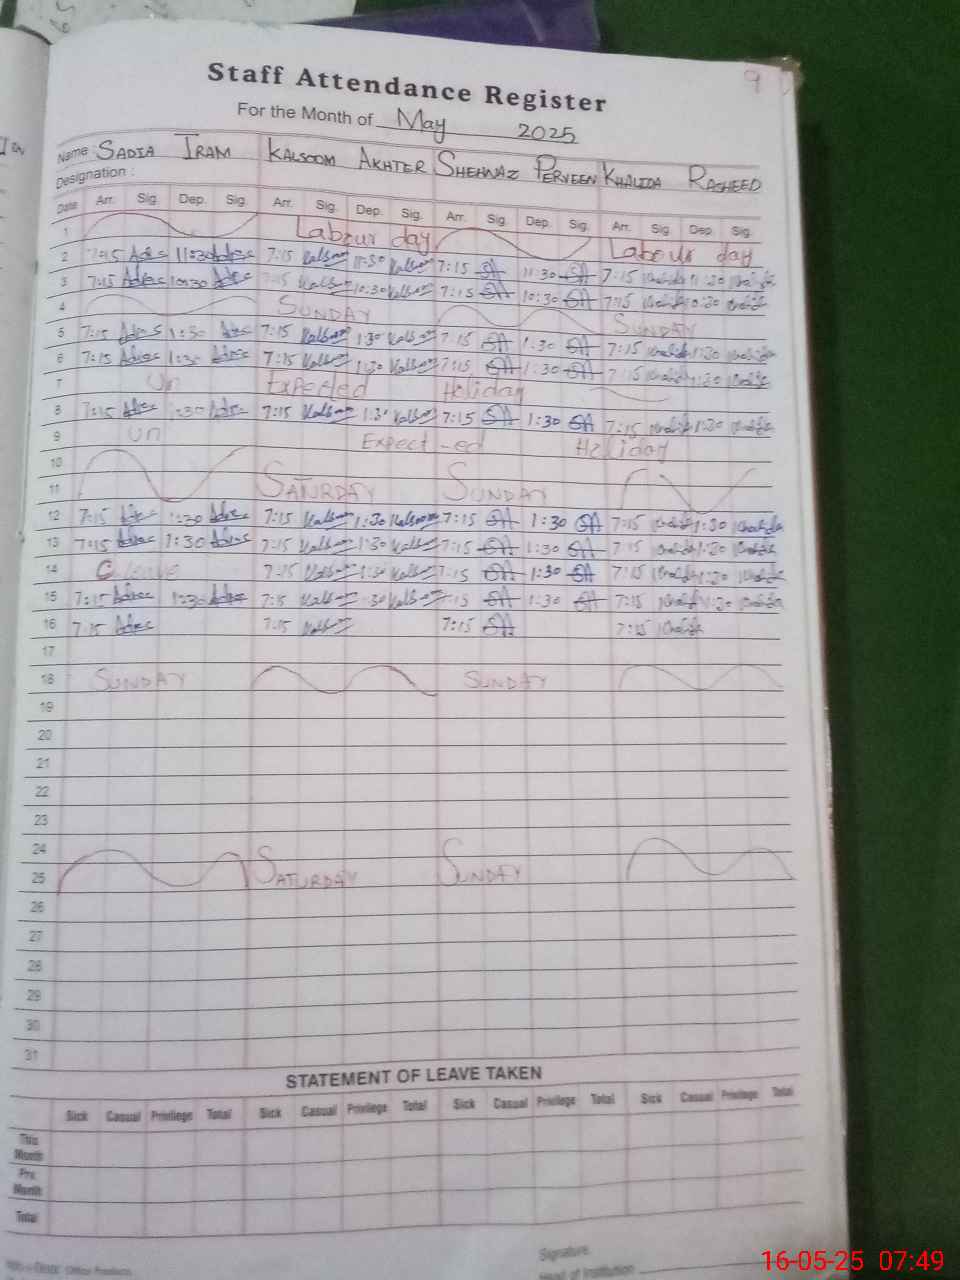 9
Staff Attendance Register
For the Month of May 2025
Name : SADIA IRAM KALSOOM AKHTER SHEHNAZ PERVEEN KHALIDA RASHEED
Designation :
Date Arr. Sig. Dep. Sig. Arr. Sig. Dep. Sig. Arr. Sig. Dep. Sig. Arr. Sig. Dep. Sig.
1 Labour day Labour day
2 7:15 11:30 7:15 Kalsoom 11:30 Kalsoom 7:15 SA 11:30 SA 7:15 Khalida 11:30 Khalida
3 7:15 10:30 7:15 Kalsoom 10:30 Kalsoom 7:15 SA 10:30 SA 7:15 Khalida 10:30 Khalida
4 SUNDAY SUNDAY
5 7:15 1:30 7:15 Kalsoom 1:30 Kalsoom 7:15 SA 1:30 SA 7:15 Khalida 1:30 Khalida
6 7:15 1:30 7:15 Kalsoom 1:30 Kalsoom 7:15 SA 1:30 SA 7:15 Khalida 1:30 Khalida
7 Un Expected Holiday
8 7:15 1:30 7:15 Kalsoom 1:3 Kalsoom 7:15 SA 1:30 SA 7:15 Khalida 1:30 Khalida
9 Un Expect-ed Holiday
10
11 SATURDAY SUNDAY
12 7:15 1:30 7:15 Kalsoom 1:30 Kalsoom 7:15 SA 1:30 SA 7:15 Khalida 1:30 Khalida
13 7:15 1:30 7:15 Kalsoom 1:30 Kalsoom 7:15 SA 1:30 SA 7:15 Khalida 1:30 Khalida
14 C.leave 7:15 Kalsoom 1:30 Kalsoom 7:15 SA 1:30 SA 7:15 Khalida 1:30 Khalida
15 7:15 1:30 7:15 Kalsoom 1:30 Kalsoom 7:15 SA 1:30 SA 7:15 Khalida 1:30 Khalida
16 7:15 7:15 Kalsoom 7:15 SA 7:15 Khalida
17
18 SUNDAY SUNDAY
19
20
21
22
23
24
25 SATURDAY SUNDAY
26
27
28
29
30
31
STATEMENT OF LEAVE TAKEN
Sick Casual Privilege Total Sick Casual Privilege Total Sick Casual Privilege Total Sick Casual Privilege Total
This Month
Prv. Month
Total
Signature
Head of Institution
16-05-25 07:49